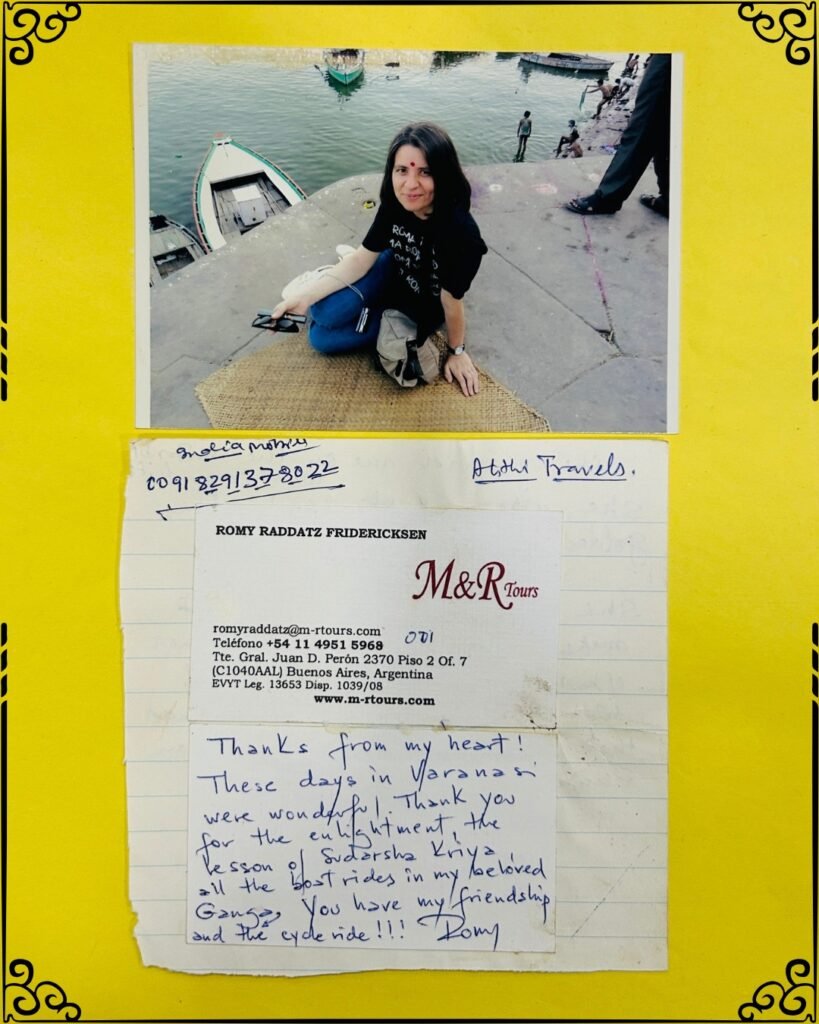 ROMA
India mobile
00918291378022
Atithi Travels.
ROMY RADDATZ FRIDERICKSEN
M&R Tours
romyraddatz@m-rtours.com
Teléfono +54 11 4951 5968
Tte. Gral. Juan D. Perón 2370 Piso 2 Of. 7
(C1040AAL) Buenos Aires, Argentina
EVYT Leg. 13653 Disp. 1039/08
www.m-rtours.com
Thanks from my heart!
These days in Varanasi
were wonderful. Thank you
for the enlightment, the
lesson of Sudarsha Kriya,
all the boat rides in my beloved
Ganga, You have my friendship
and the cycle ride!!! Romy